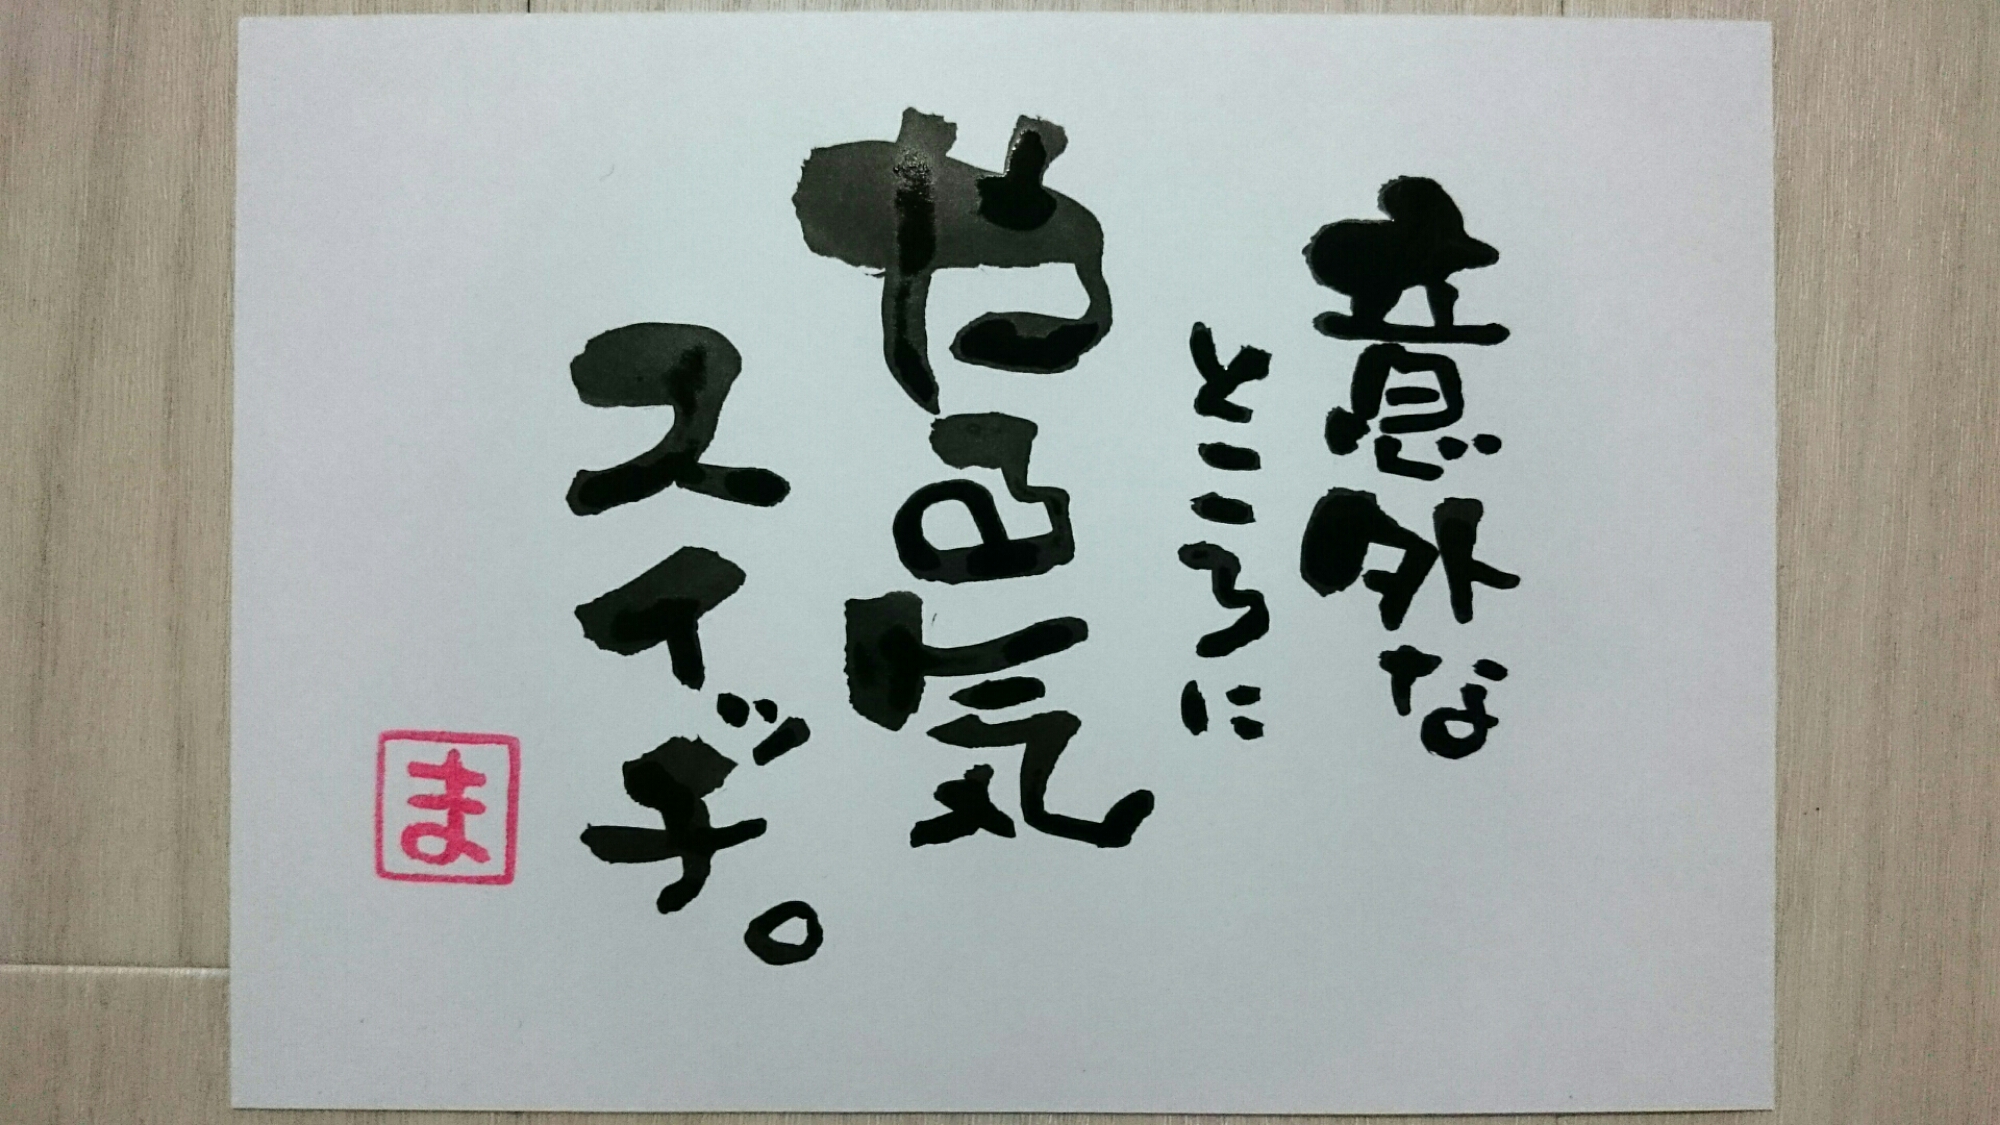 意外な
ところに
やる気
スイッチ。
ま